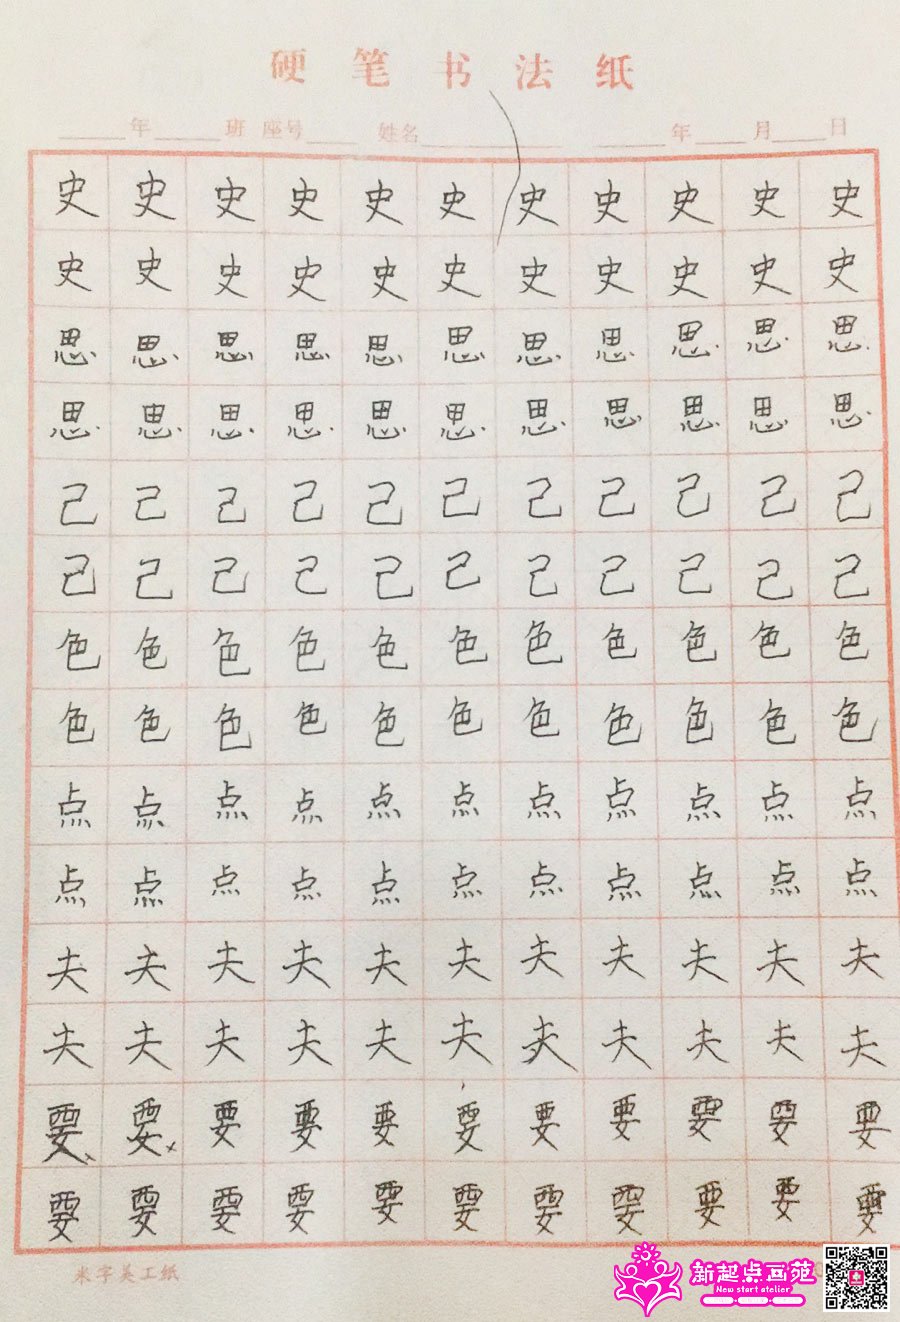 硬笔书法纸
年 班 座号 姓名 年 月 日
史史史史史史史史史史史
史史史史史史史史史史史
思思思思思思思思思思思
思思思思思思思思思思思
己己己己己己己己己己己
己己己己己己己己己己己
色色色色色色色色色色色
色色色色色色色色色色色
点点点点点点点点点点点
点点点点点点点点点点点
夫夫夫夫夫夫夫夫夫夫夫
夫夫夫夫夫夫夫夫夫夫夫
要要要要要要要要要要要
要要要要要要要要要要要
米字美工纸
新起点画苑
New start atelier